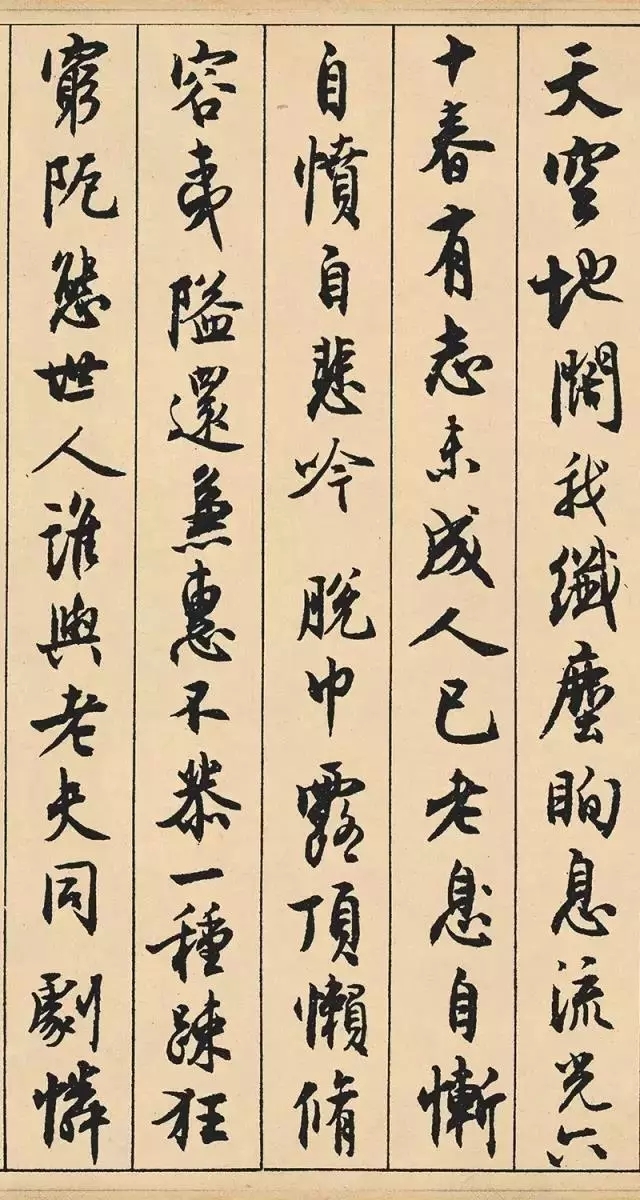 天空地闊我纖塵眴息流光六
十春有志未成人已老息自慚
自憤自悲吟 脫巾露頂懶脩
容夷隘還兼惠不恭一種疎狂
窮阨態世人誰與老夫同劇憐